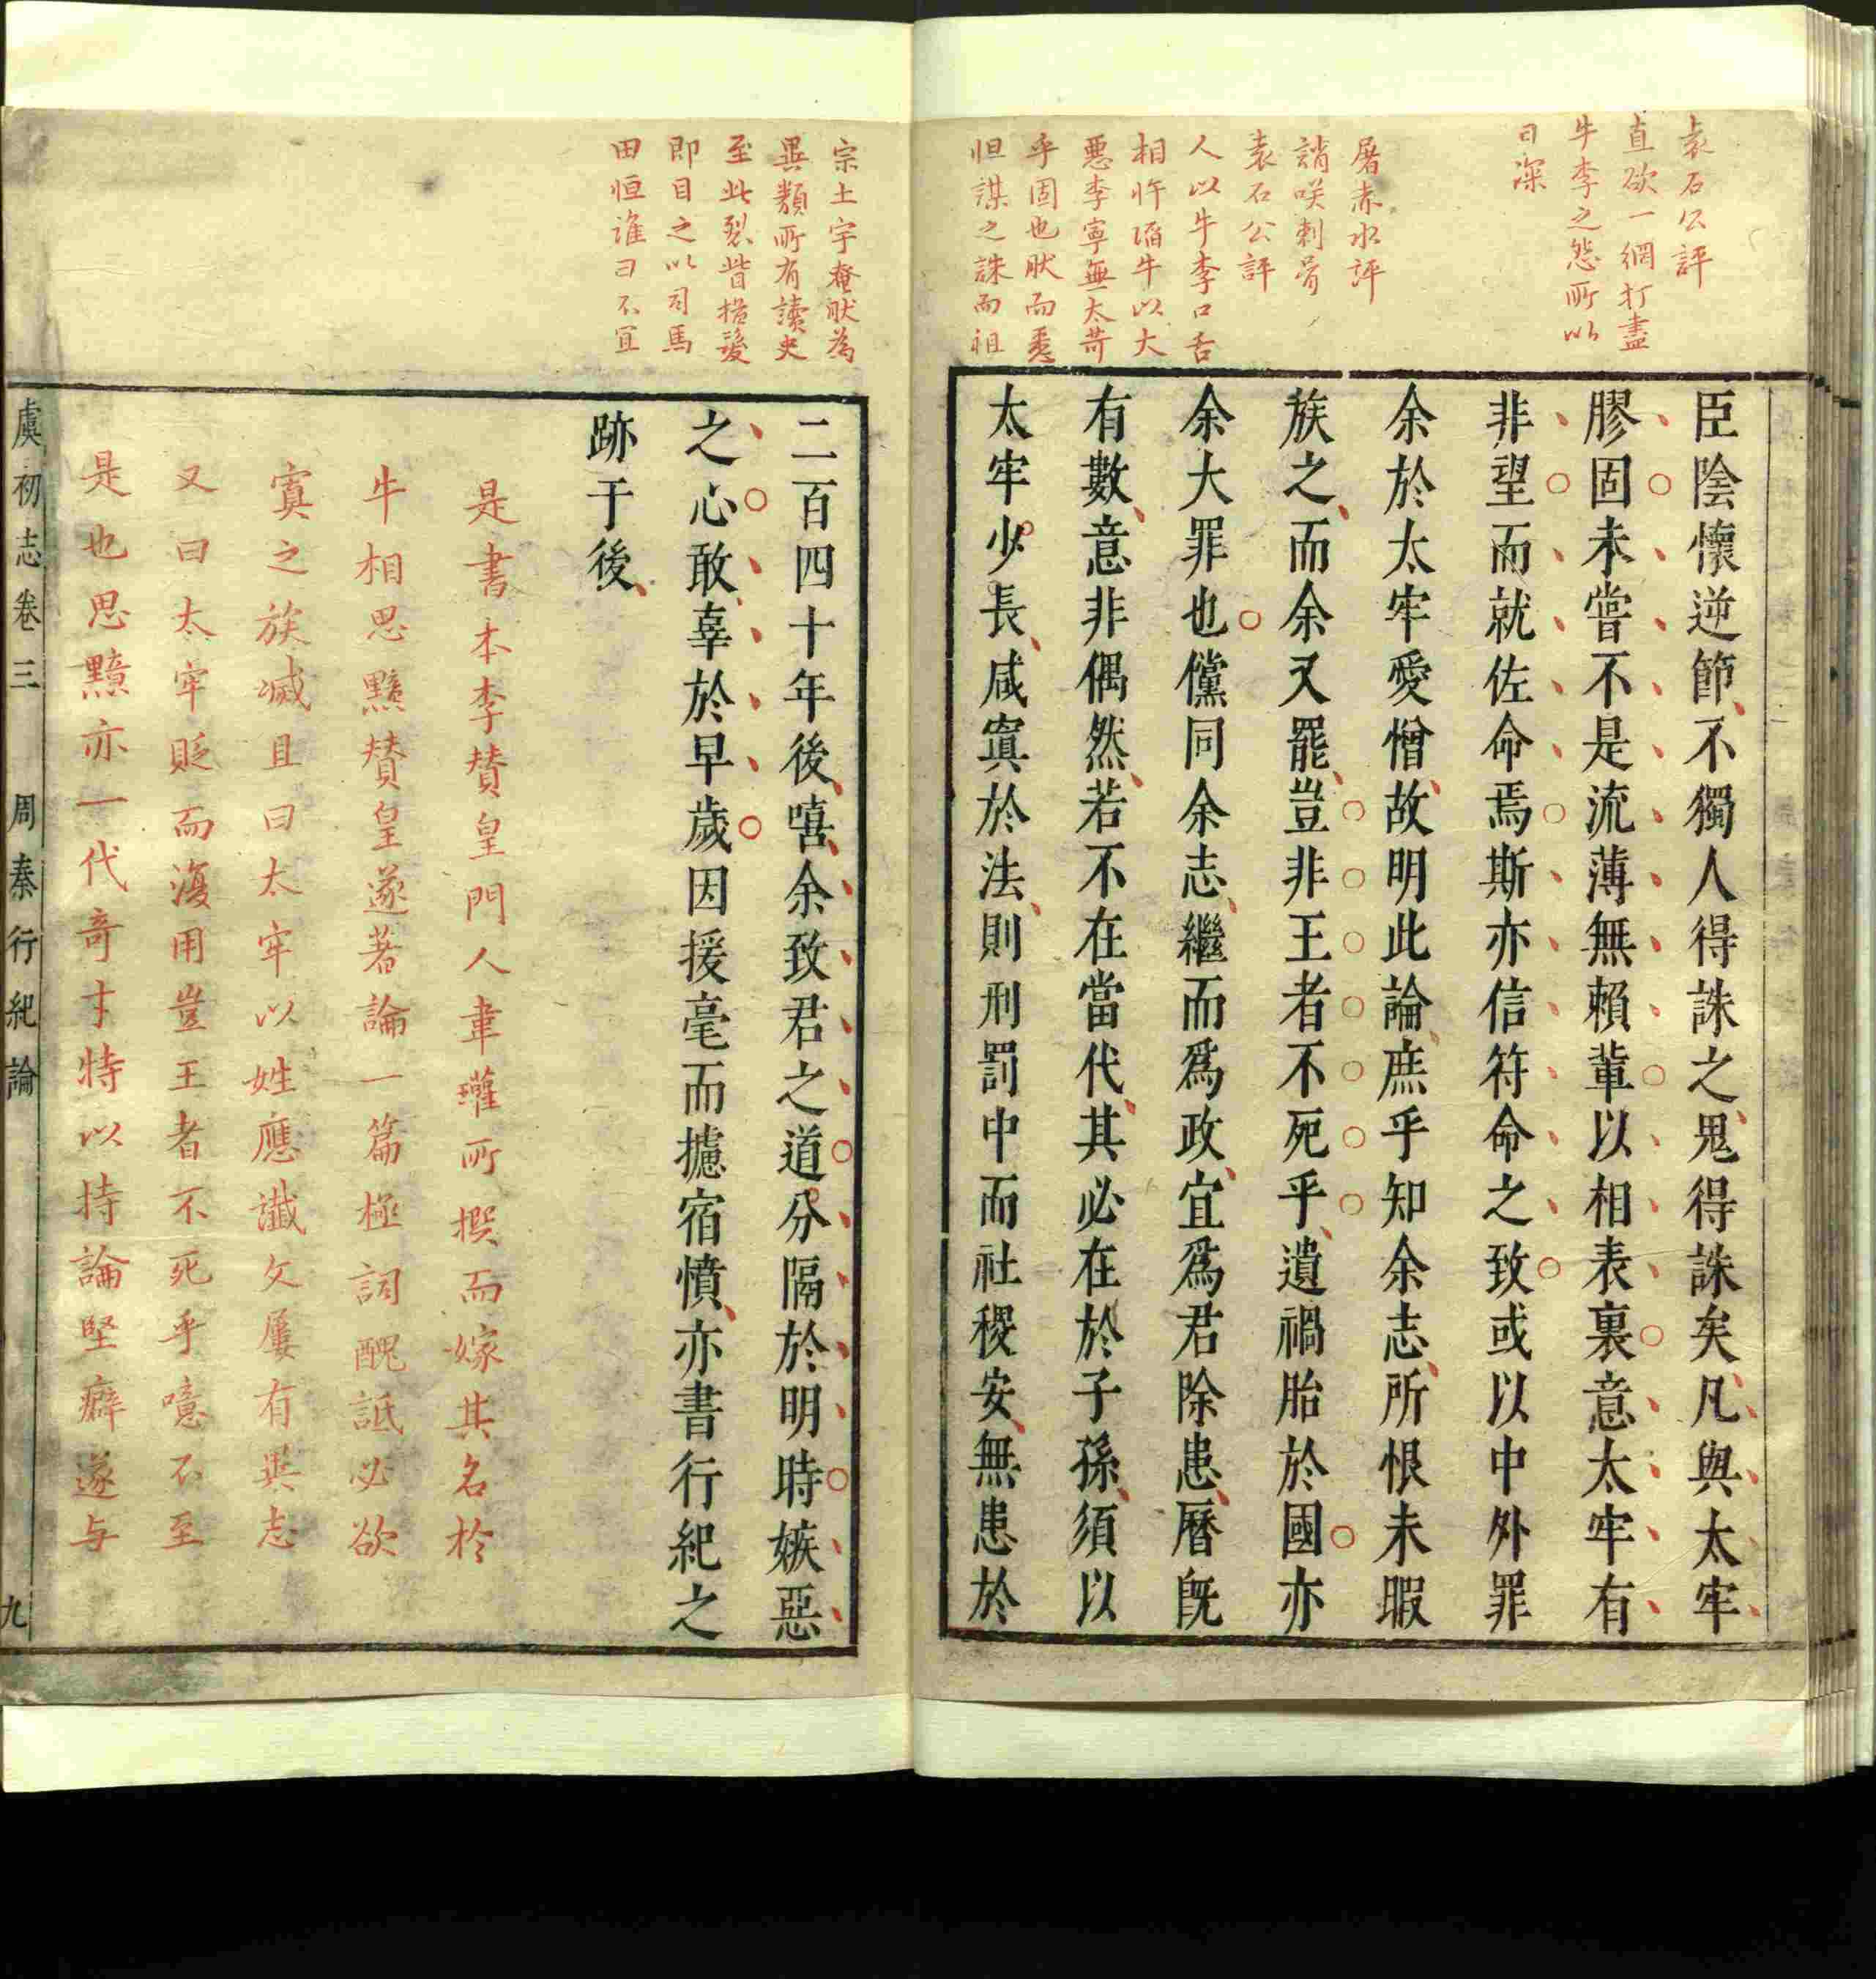 袁石公評
直欲一網打盡
牛李之怨所以
日深
屠赤水評
誚咲刺骨
袁石公評
人以牛李口舌
相忤謟牛以大
悪李寧無太苛
乎固也肰而悉
怛謀之誅而祖
臣陰懷逆節不獨人得誅之鬼得誅矣凡與太牢
膠固未嘗不是流薄無賴輩以相表裏意太牢有
非望而就佐命焉斯亦信符命之致或以中外罪
余於太牢愛憎故明此論庶乎知余志所恨未暇
族之而余又罷豈非王者不死乎遺禍胎於國亦
余大罪也儻同余志繼而爲政宜爲君除患曆旣
有數意非偶然若不在當代其必在於子孫須以
太牢少長咸寘於法則刑罰中而社稷安無患於
宗土宇奄肰為
異類所有讀史
至此裂眥搤髮
即目之以司馬
田恒誰曰不宜
二百四十年後嘻余致君之道分隔於明時嫉惡
之心敢辜於早歲因援毫而攄宿憤亦書行紀之
跡于後
是書本李賛皇門人韋瓘所撰而嫁其名於
牛相思黯賛皇遂著論一篇極詞醜詆必欲
寘之族滅且曰太牢以姓應讖文屢有異志
又曰太牢貶而復用豈王者不死乎噫不至
是也思黯亦一代奇才特以持論堅癖遂与
虞初志卷三 周秦行紀論 九